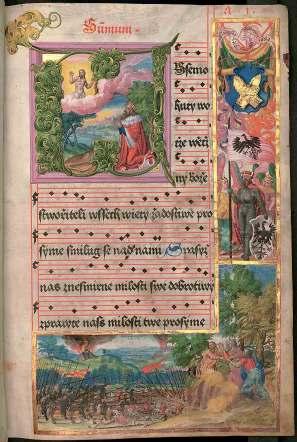 Sumum
Wssemo
huty wo
tze wěti
ny boze
stworiteli wssech wiety zadostiwe pro
syme smilug se nad nami Sprasyz
nas zmesmirne milosti swe dobrotiwy
zprawte nass milosti twe prosyme